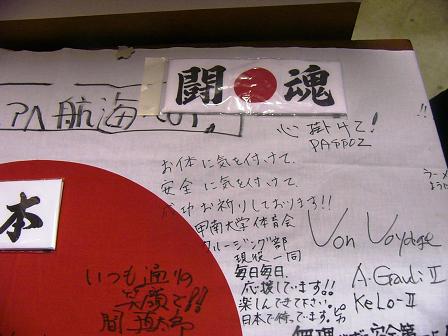 闘魂
航海
心掛けて!
PAPPOZ
お体に気を付けて
安全に気を付けて
成功お祈りしております!!
甲南大学体育会
クルージング部
現役一同
毎日毎日
応援しています!!
楽しんできて下さい。
日本で待っています。
Von Voyage
A-Gaudi II
KeLo-II
本
いつも通りの
笑顔で!!